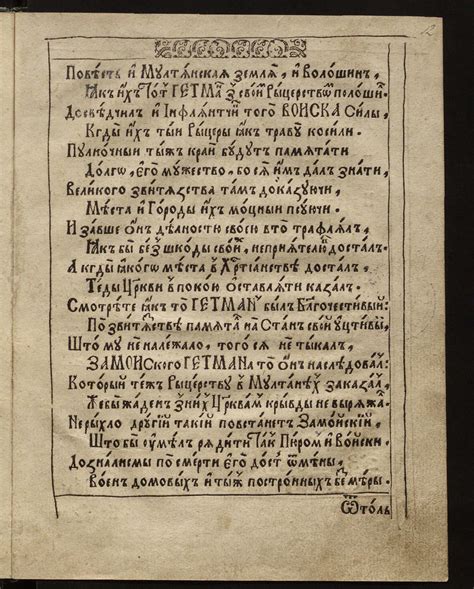 2
Повѣсть и Мултѧнская землѧ, и Волошинъ,
Ꙗкъ ихъ тот Гетмⷩа з свои Рыцерствѡ полоши.
Досвѣдчилъ и Инфлѧнтчи того ВОЙСКА Силы,
Кгды ихъ тыи Рыцеры ꙗкъ траву косили.
Пулночныи тыжъ край будутъ памѧтати
Долгѡ, его мужество, бо сѧ имъ далъ знати,
Великого звитѧзства тамъ доказуючи,
Мѣста и Городы ихъ моцныи псуючи.
И завше онъ дѣлности своеи в то трафѧлъ,
Ꙗкъ бы без шкоды своей, непрїѧтелю досталъ.
А кгды ꙗкого мѣста в Хрⷭтїѧнствѣ досталъ,
Теды Цркви в покои оставлѧти казалъ.
Смотрѣте ꙗкъ то ГЕТМАН былъ Благочестивый:
По звитѧзствѣ памѧтал на Станъ свой учтивы,
Што му не належало, того сѧ не тыкалъ,
ЗАМОЙСкого ГЕТМАНа то онъ наслѣдовал:
Который тежъ Рыцерству в Мултанех заказал,
Же бы жаден з них Црквам крывды не вырѧжал.
Не рыхло другїй такїй повстанетъ Замойскїй,
Што бы умѣлъ рѧдити так Пиром и Войски.
Дозналисмы по смерти его дост ѿмѣны,
Воен домовыхъ и тыж постронных без мѣры.
Ѿтоль